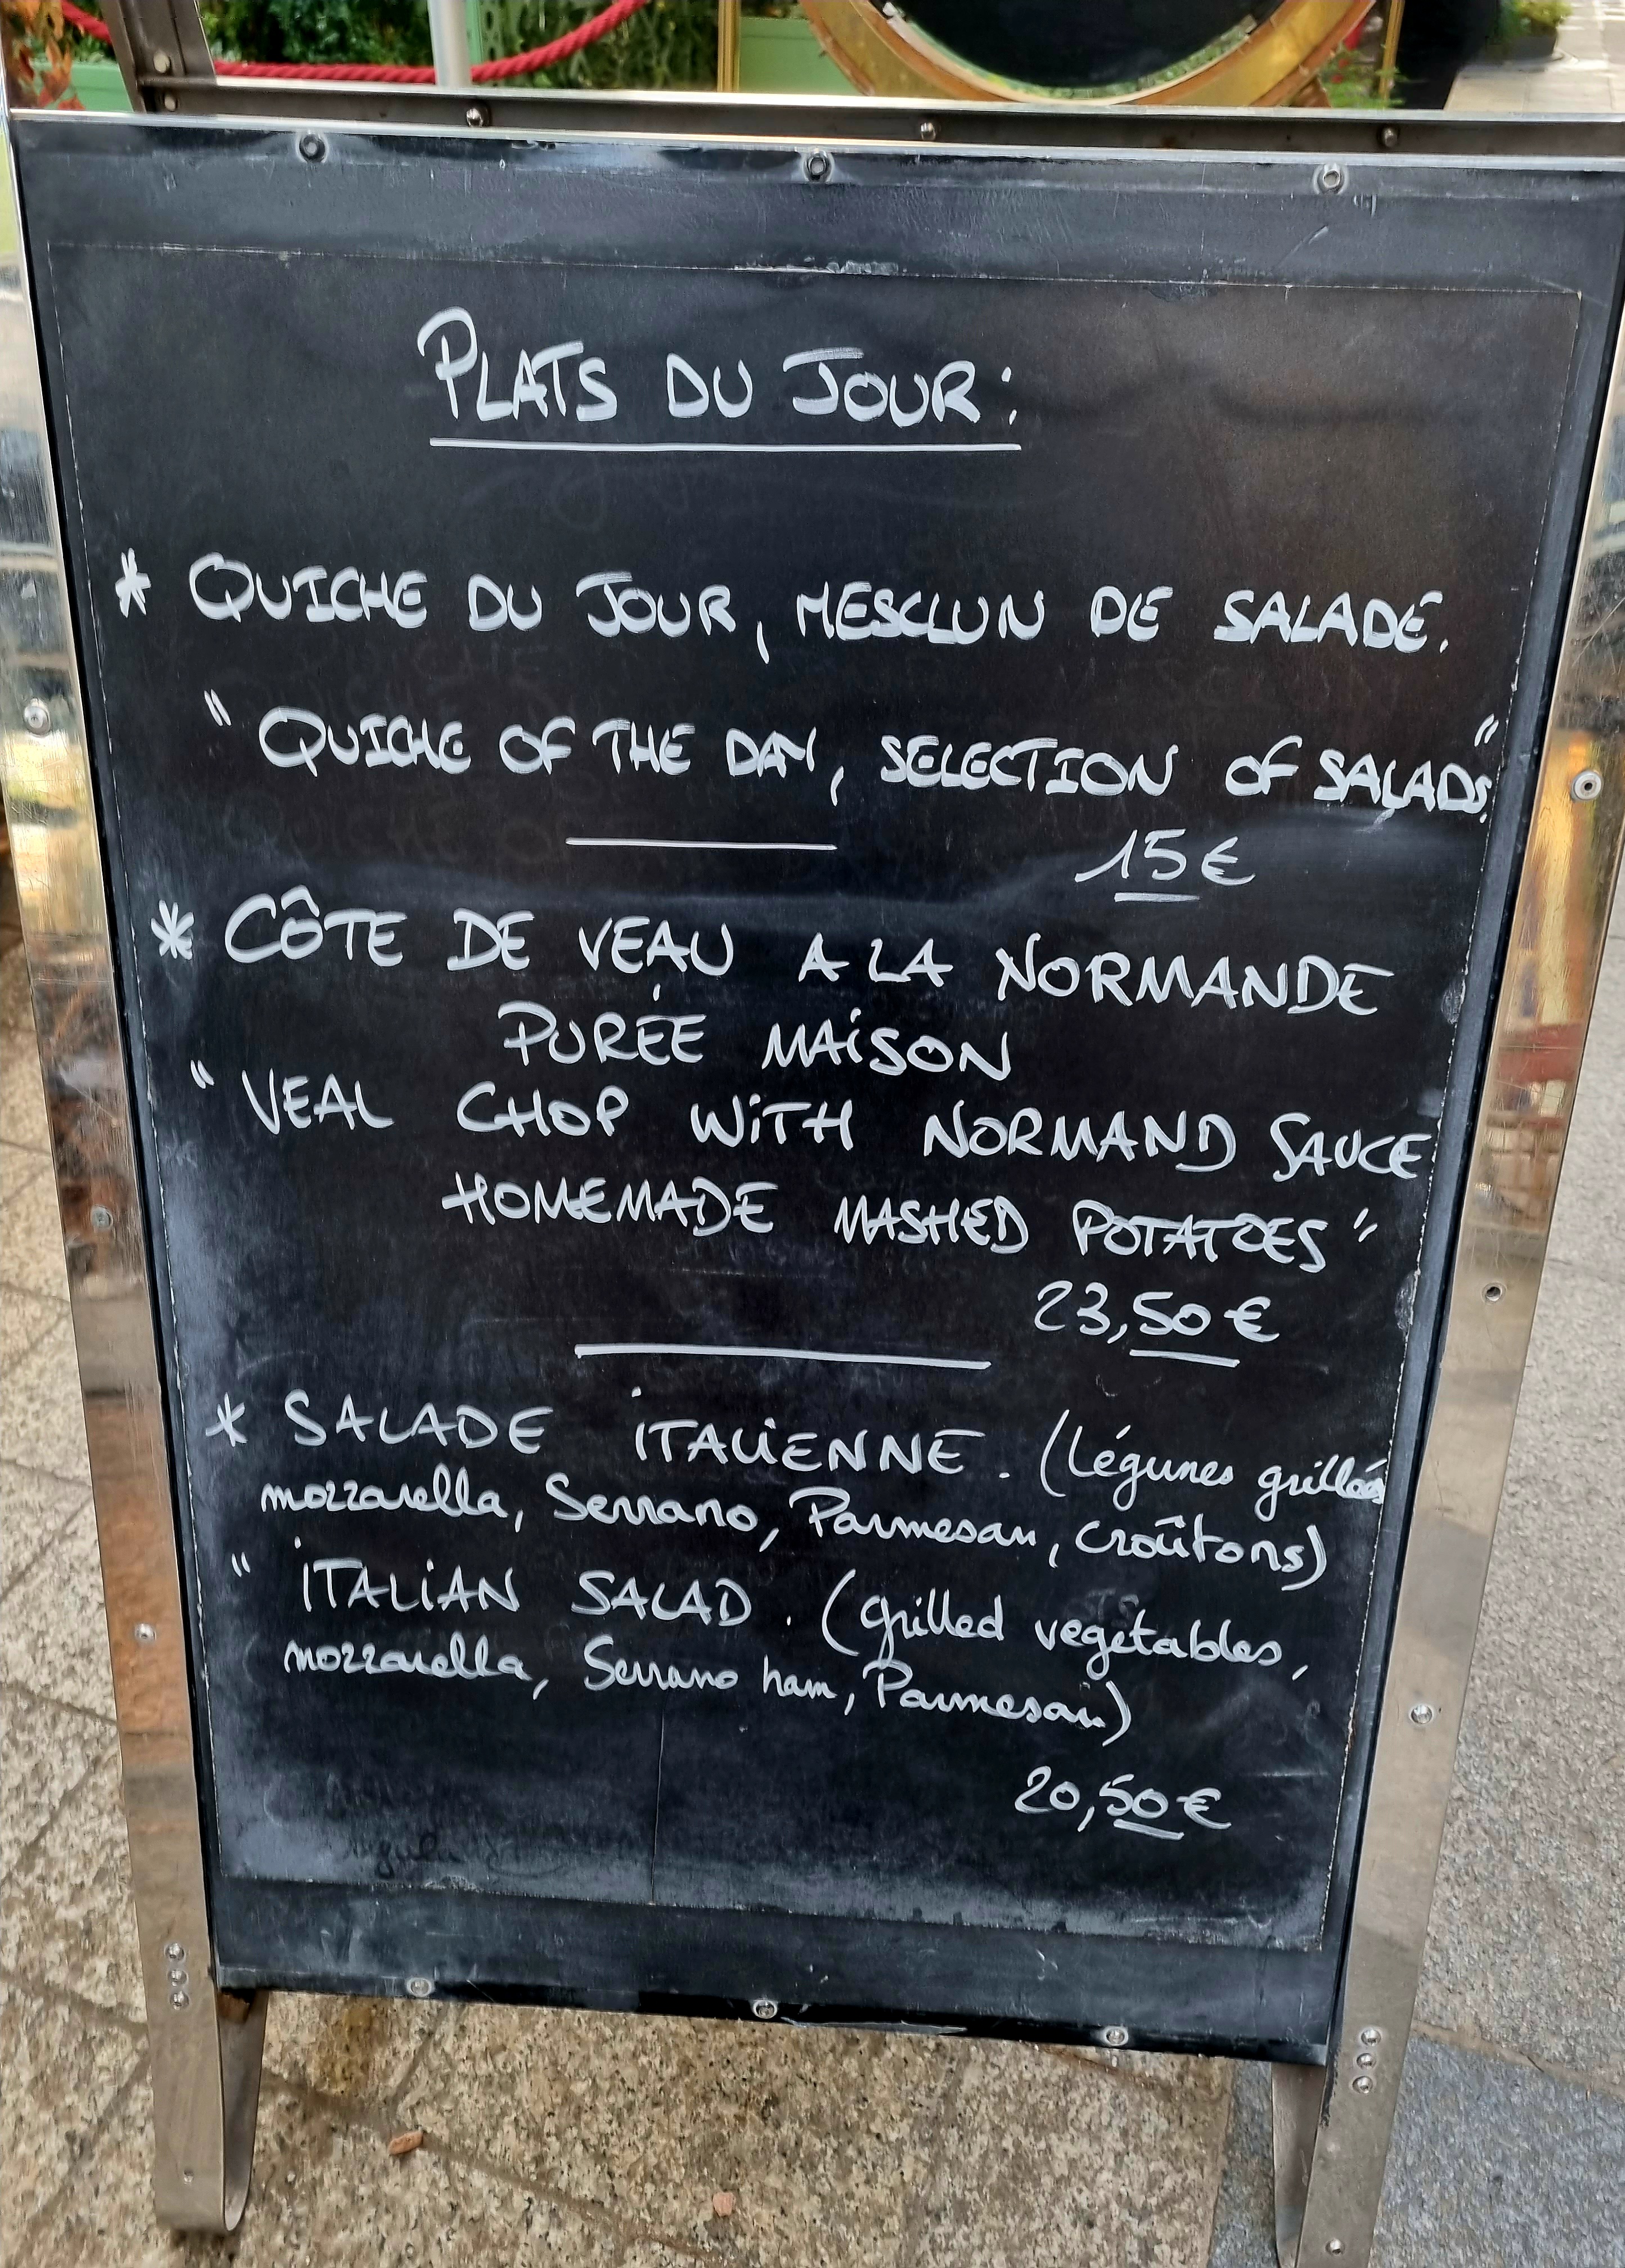 PLATS DU JOUR :
* QUICHE DU JOUR, MESCLUN DE SALADE.
" QUICHE OF THE DAY, SELECTION OF SALADS."
15€
* CÔTE DE VEAU A LA NORMANDE
PURÉE MAISON
" VEAL CHOP WITH NORMAND SAUCE
HOMEMADE MASHED POTATOES "
23,50 €
* SALADE ITALIENNE. (Légumes grillés
mozzarella, Serrano, Parmesan, croûtons)
" ITALIAN SALAD. (grilled vegetables,
mozzarella, Serrano ham, Parmesan)
20,50 €